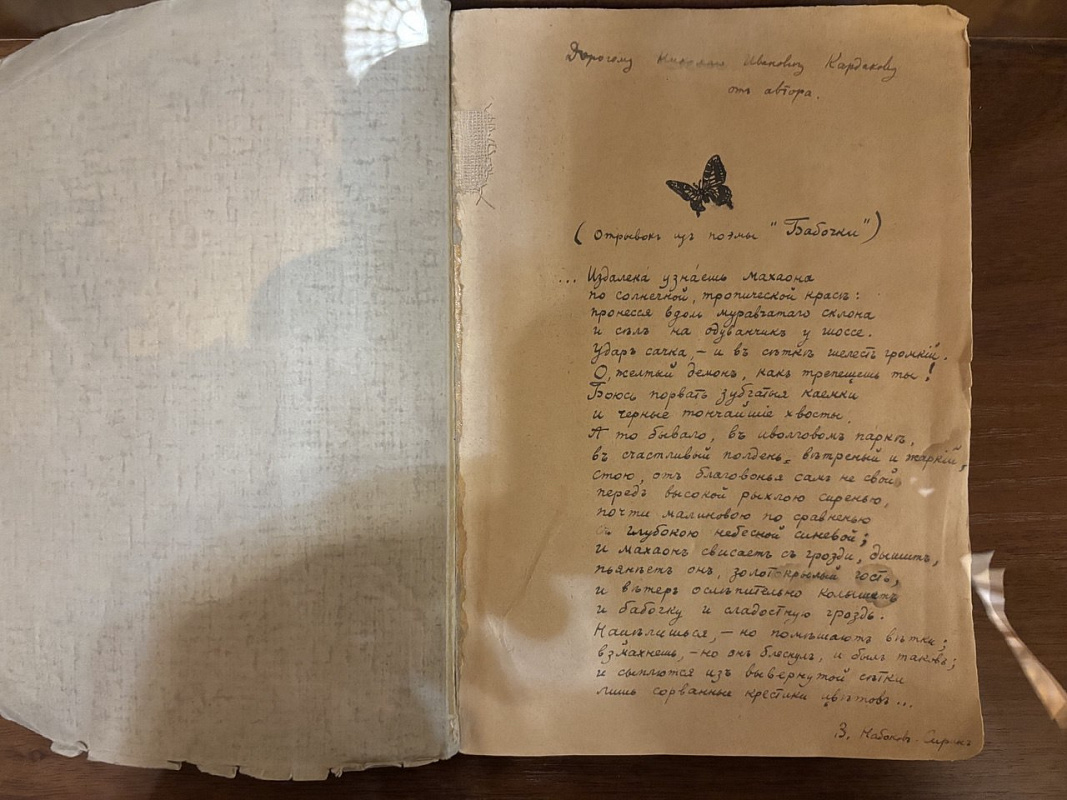 Дорогому Ивановичу Кардакову
отъ автора.
(Отрывокъ изъ поэмы "Бабочки")
... Издалека́ узна́ешь махаона
по солнечной, тропической красѣ:
пронесся вдоль муравчатаго склона
и сѣлъ на одуванчикъ у шоссе.
Ударъ сачка, – и въ сѣткѣ шелестъ громкій.
О, желтый демонъ, какъ трепещешь ты!
Боюсь порвать зубчатыя каемки
и черные тончайшіе хвосты.
А то бывало, въ иволговомъ паркѣ,
въ счастливый полдень, вѣтреный и жаркій,
стою, отъ благовонья самъ не свой,
передъ высокой рыхлою сиренью,
почти малиновою по сравненью
съ глубокою небесной синевой;
и махаонъ свисаетъ съ грозди, дышитъ,
пьянѣетъ онъ, золотокрылый гость,
и вѣтеръ ослѣпительно колышетъ
и бабочку и сладостную гроздь.
Нацѣлишься, – но помѣшаютъ вѣтки;
взмахнешь, – но онъ блеснулъ, и былъ таковъ;
и сыплются изъ вывернутой сѣтки
лишь сорванные крестики цвѣтовъ...
В. Набоковъ-Сиринъ